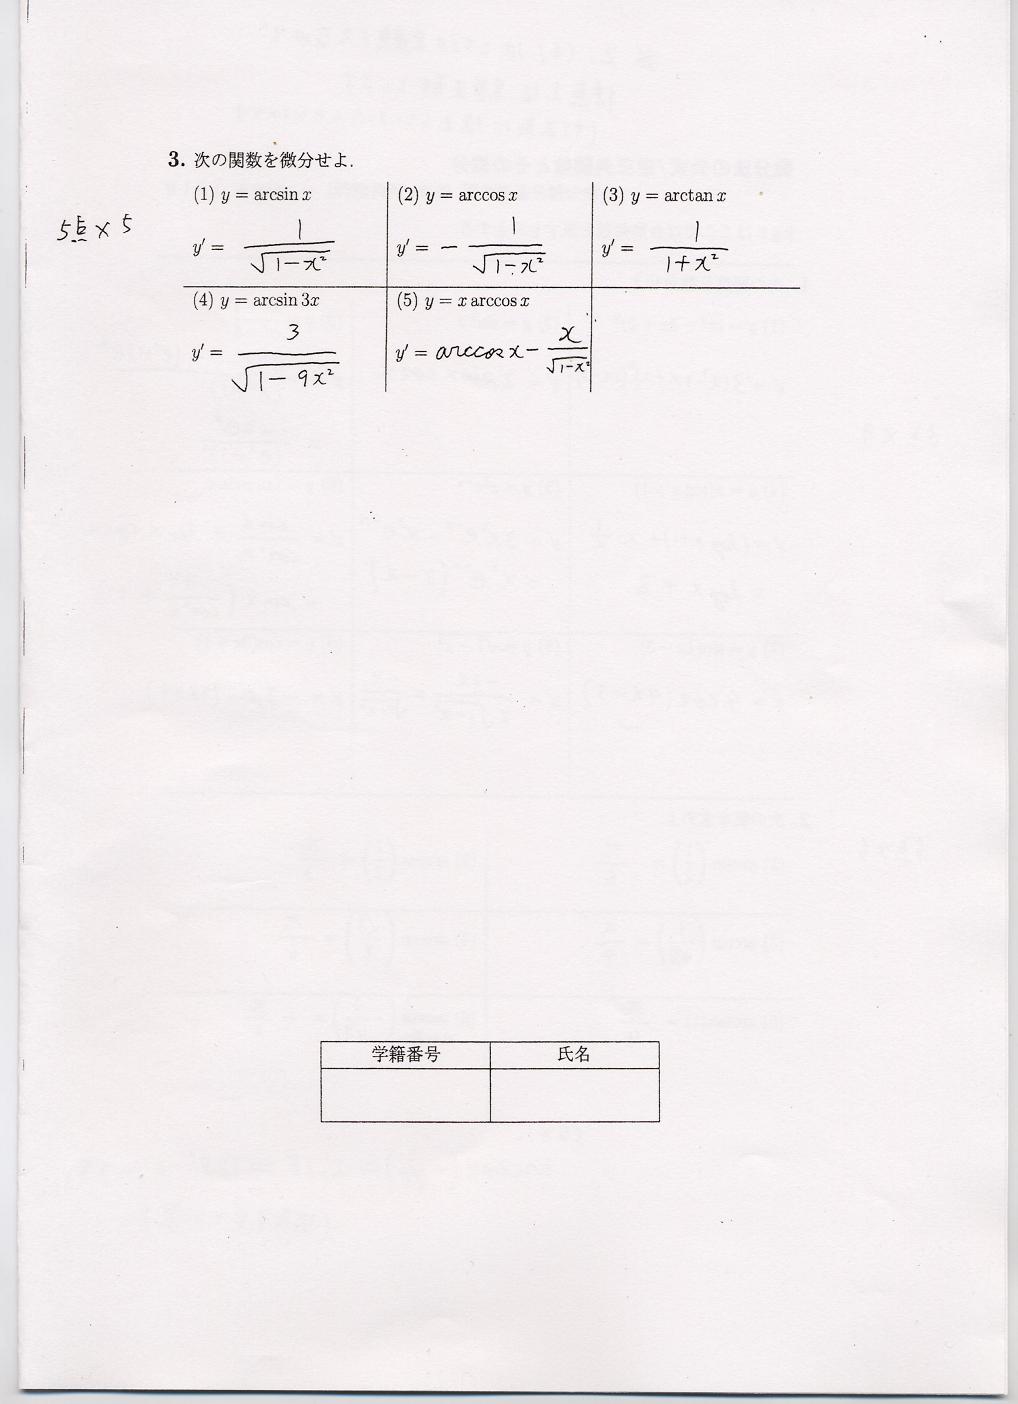 3. 次の関数を微分せよ.
5点×5
(1) y = arcsin x
y′ = 1/√(1−x²)
(2) y = arccos x
y′ = − 1/√(1−x²)
(3) y = arctan x
y′ = 1/(1+x²)
(4) y = arcsin 3x
y′ = 3/√(1−9x²)
(5) y = x arccos x
y′ = arccos x − x/√(1−x²)
学籍番号 氏名